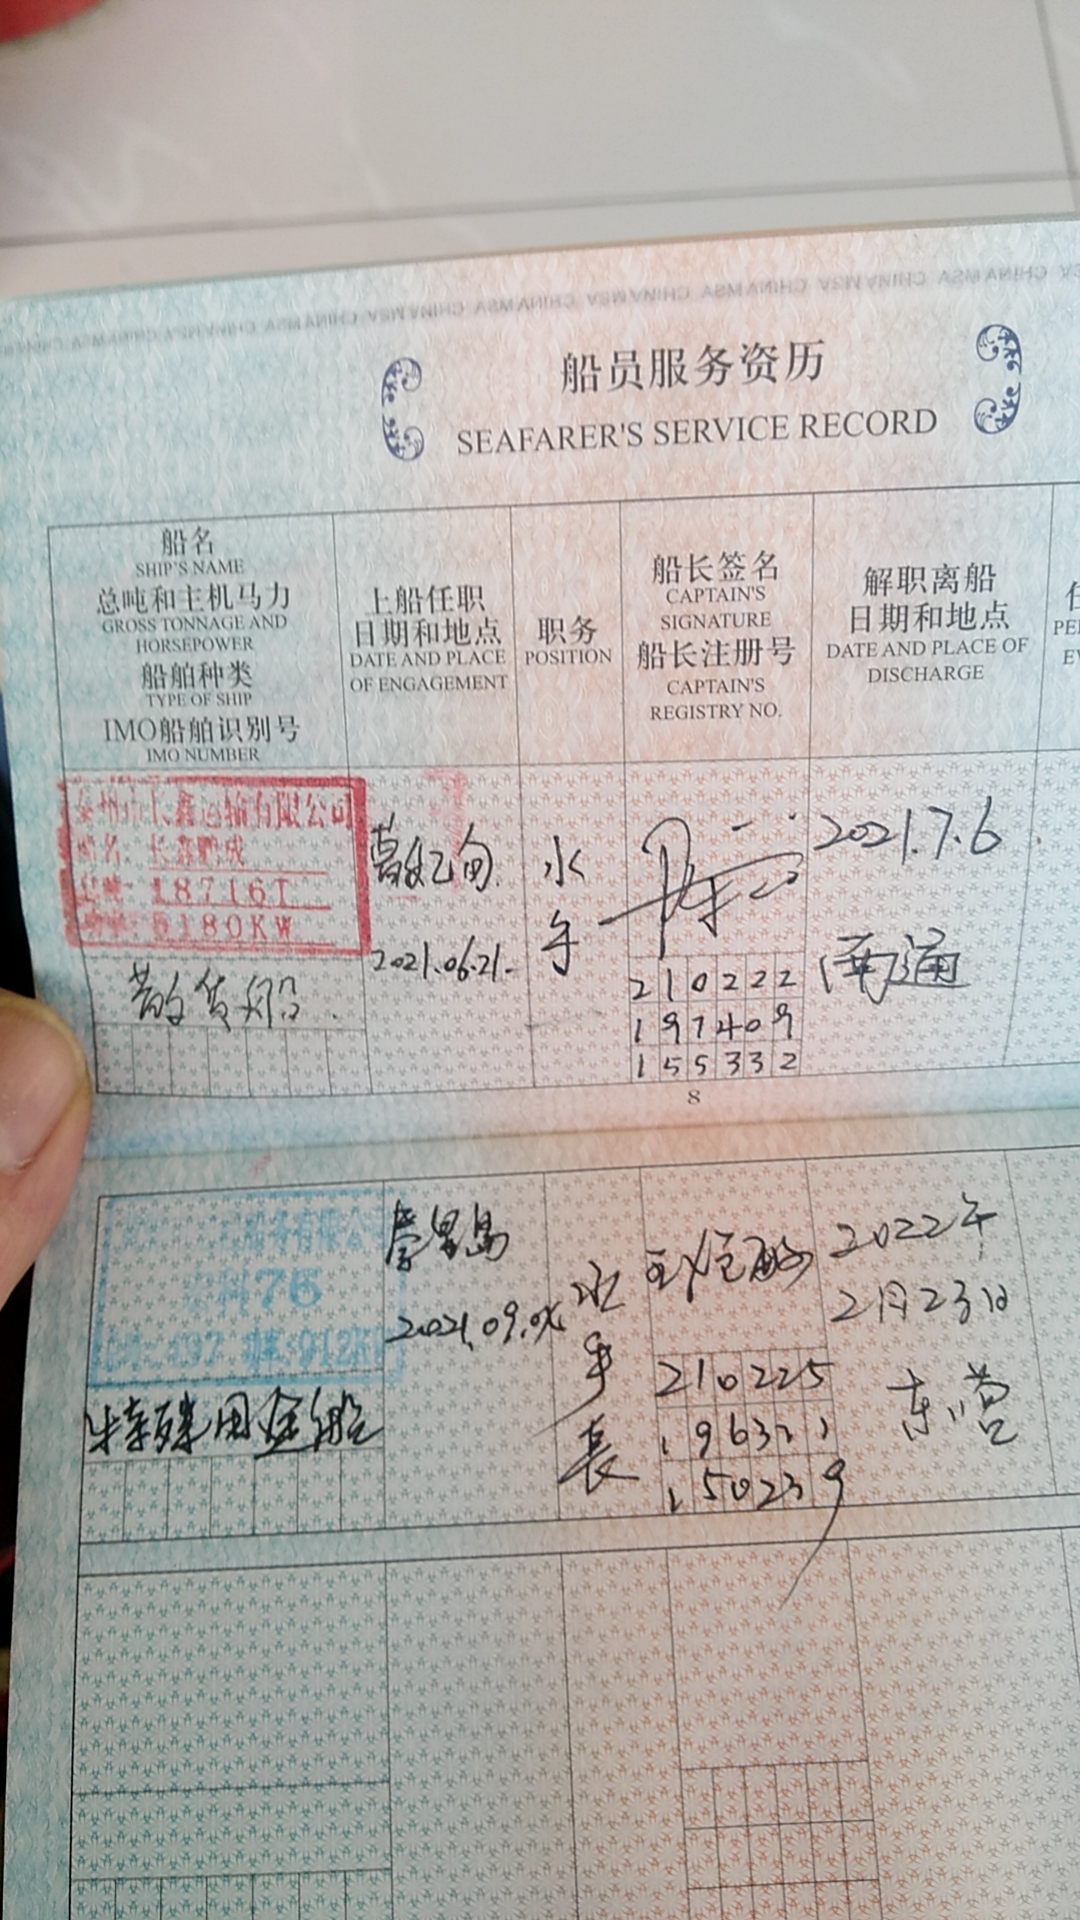 CHINA MSA CHINA MSA CHINA MSA CHINA MSA CHINA MSA CHINA MSA CHINA MSA
船员服务资历
SEAFARER'S SERVICE RECORD
船名
SHIP'S NAME
总吨和主机马力
GROSS TONNAGE AND
HORSEPOWER
船舶种类
TYPE OF SHIP
IMO船舶识别号
IMO NUMBER
上船任职
日期和地点
DATE AND PLACE
OF ENGAGEMENT
职务
POSITION
船长签名
CAPTAIN'S
SIGNATURE
船长注册号
CAPTAIN'S
REGISTRY NO.
解职离船
日期和地点
DATE AND PLACE OF
DISCHARGE
鑫运输有限公司
船名
18716T
5180KW
散货船
2021.06.21
水
手
210222
197409
155332
2021.7.6
南通
8
76
特殊用途船
秦皇岛
2021.09.
水
手
长
210225
150239
2022年
2月23日
东营